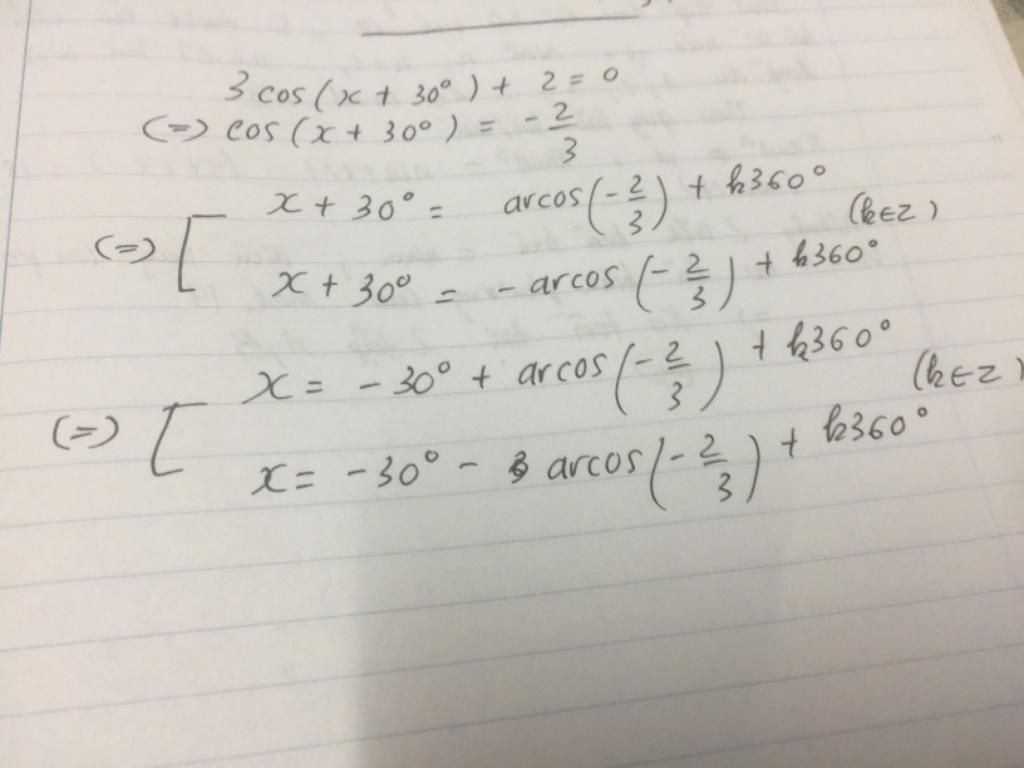 3 cos(x + 30°) + 2 = 0
(=) cos(x + 30°) = - 2/3
x + 30° = arcos(- 2/3) + k360°
(=) [ (k∈Z)
x + 30° = - arcos(- 2/3) + k360°
x = - 30° + arcos(- 2/3) + k360°
(=) [ (k∈Z)
x = - 30° - arcos(- 2/3) + k360°